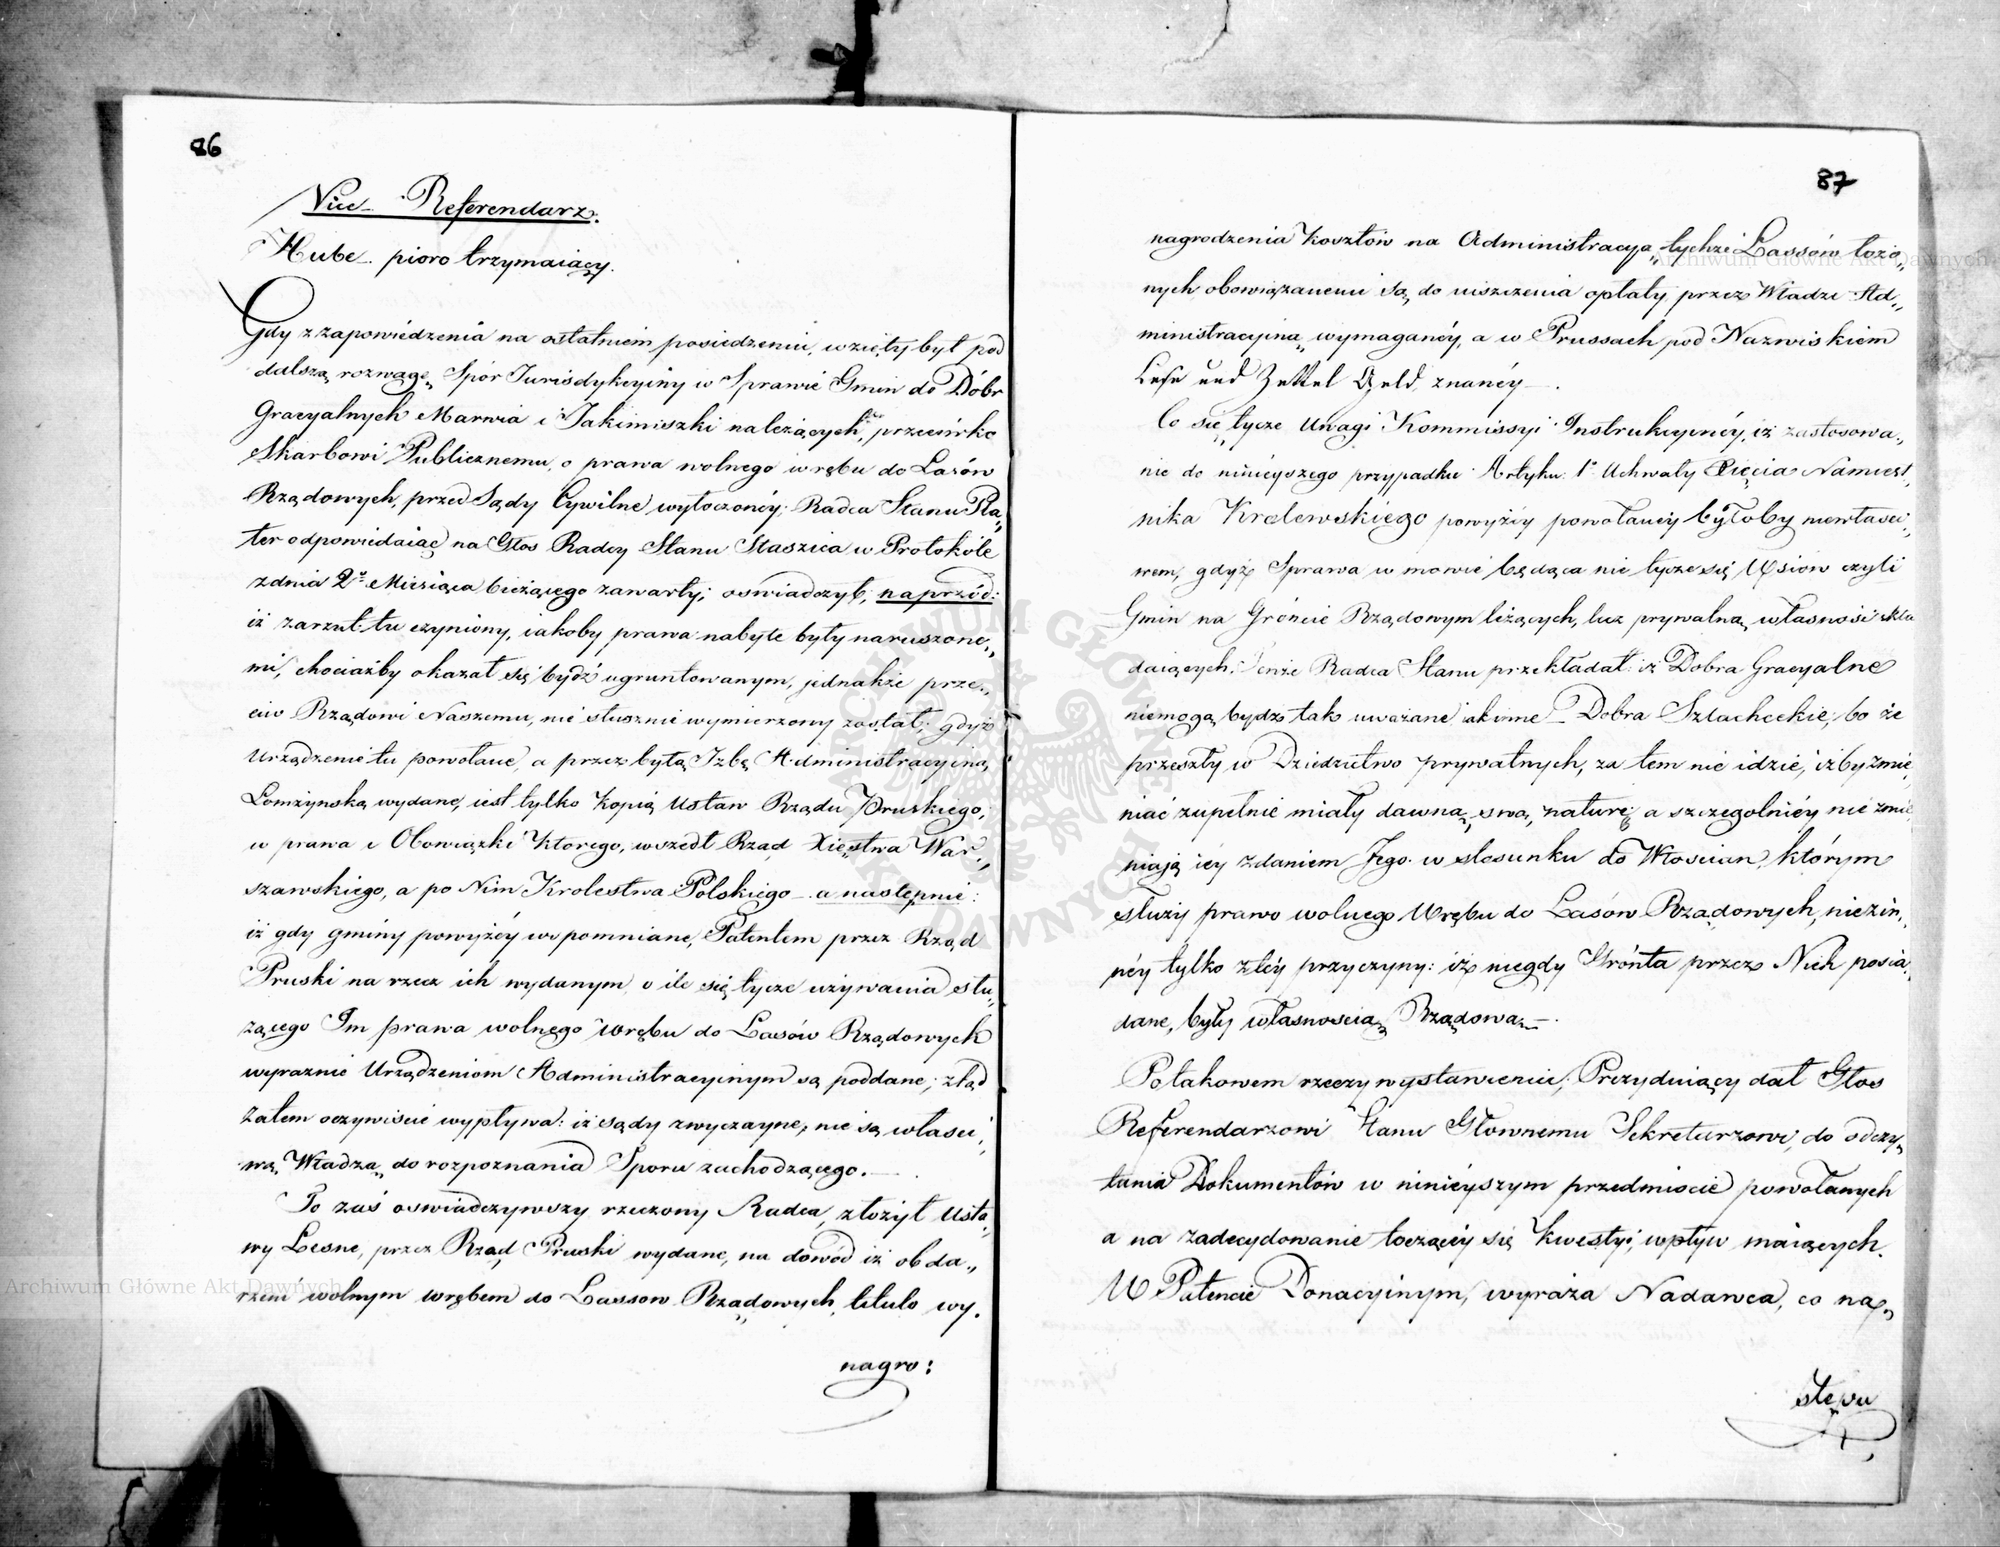 86
Vice Referendarz.
Hube pioro trzymaiący.
Gdy z zapowiedzenia na ostatniem posiedzeniu, wzięty był pod
dalszą rozwagę, Spór Jurisdykcyiny w Sprawie Gmin do Dóbr
Gracyalnych Marwia i Jakimiszki należących, przeciwko
Skarbowi Publicznemu, o prawa wolnego wrębu do Lasów
Rządowych, przed Sądy Cywilne wytoczonéy; Radca Stanu Pla„
ter odpowiedaiąc na Głos Radcy Stanu Staszica w Protokóle
z dnia 2º Miesiąca bieżącego zawarty; oswiadczył, naprzód:
iż zarzut tu czyniony, iakoby prawa nabyte były naruszone„
mi, chociażby okazał się bydź ugruntowanym, jednakże prze„
ciw Rządowi Naszemu, nie słusznie wymierzony został; gdyż
Urządzenie tu powołane, a przez byłą Izbę Administracyiną
Łomżynską wydane, iest tylko kopią Ustaw Rządu Pruskiego,
w prawa i Obowiązki którego, wszedł Rząd Xięstwa War„
szawskiego, a po Nim Krolestwa Polskiego – a następnie:
iż gdy gminy powyżéy wspomniane, Patentem przez Rząd
Pruski na rzecz ich wydanym, o ile się tycze używania słu„
żącego Im prawa wolnego wrębu do Lasów Rządowych
wyraznie Urządzeniom Administracyinym są poddane; ztąd
zatem oczywiscie wypływa: iż sądy zwyczayne, nie są własci„
wą Władzą do rozpoznania Sporu zachodzącego.
To zaś oswiadczywszy rzeczony Radca, złożył Usta„
wy Lesne, przez Rząd Pruski wydane, na dowód iż obda„
rzeni wolnym wrębem do Lassow Rządowych, titulo wy.
nagro:
87
nagrodzenia kosztów na Administracyą tychże Lassów łożo„
nych obowiązanemi są do uiszczenia opłaty przez Władzę Ad„
ministracyiną wymaganéy, a w Prussach pod Nazwiskiem
und Zettel Geld znanéy.
Co się tycze Uwagi Kommissyi Instrukcyinéy, iż zastosowa„
nie do ninieyszego przypadku Artyku: 1º Uchwały Xięcia Namiest„
nika Krolewskiego powyżéy powołanéy byłoby niewłasci„
wem, gdyż Sprawa w mowie będąca nie tycze się Wsiów czyli
Gmin na Gróncie Rządowym leżących, lecz prywatną własność skła
daiących. Tenże Radca Stanu przekładał: iż Dobra Gracyalne
niemogą bydź tak uważane iak inne Dobra Szlacheckie; bo że
przeszły w Dziedzictwo prywatnych, za tem nie idzie, iżby zmie„
niać zupełnie miały dawną swą naturę; a szczegolniéy nie zmie
niają iéy zdaniem Jego w stosunku do Włoscian, którym
służy prawo wolnego Wrębu do Lasów Rządowych, nie z in„
néy tylko z téy przyczyny: iż niegdy Grónta przez Nich posia„
dane, były własnoscią Rządową.
Po takowem rzeczy wystawieniu, Prezyduiący dał Głos
Referendarzowi Stanu Głownemu Sekretarzowi, do odczy„
tania Dokumentów w ninieyszym przedmiocie powołanych
a na zadecydowanie toczącéy się kwestyi, wpływ maiących.
W Patencie Donacyinym, wyraża Nadawca, co na„
stępu
Archiwum Główne Akt Dawnych
Archiwum Główne Akt Dawnych
ARCHIWUM GŁÓWNE AKT DAWNYCH